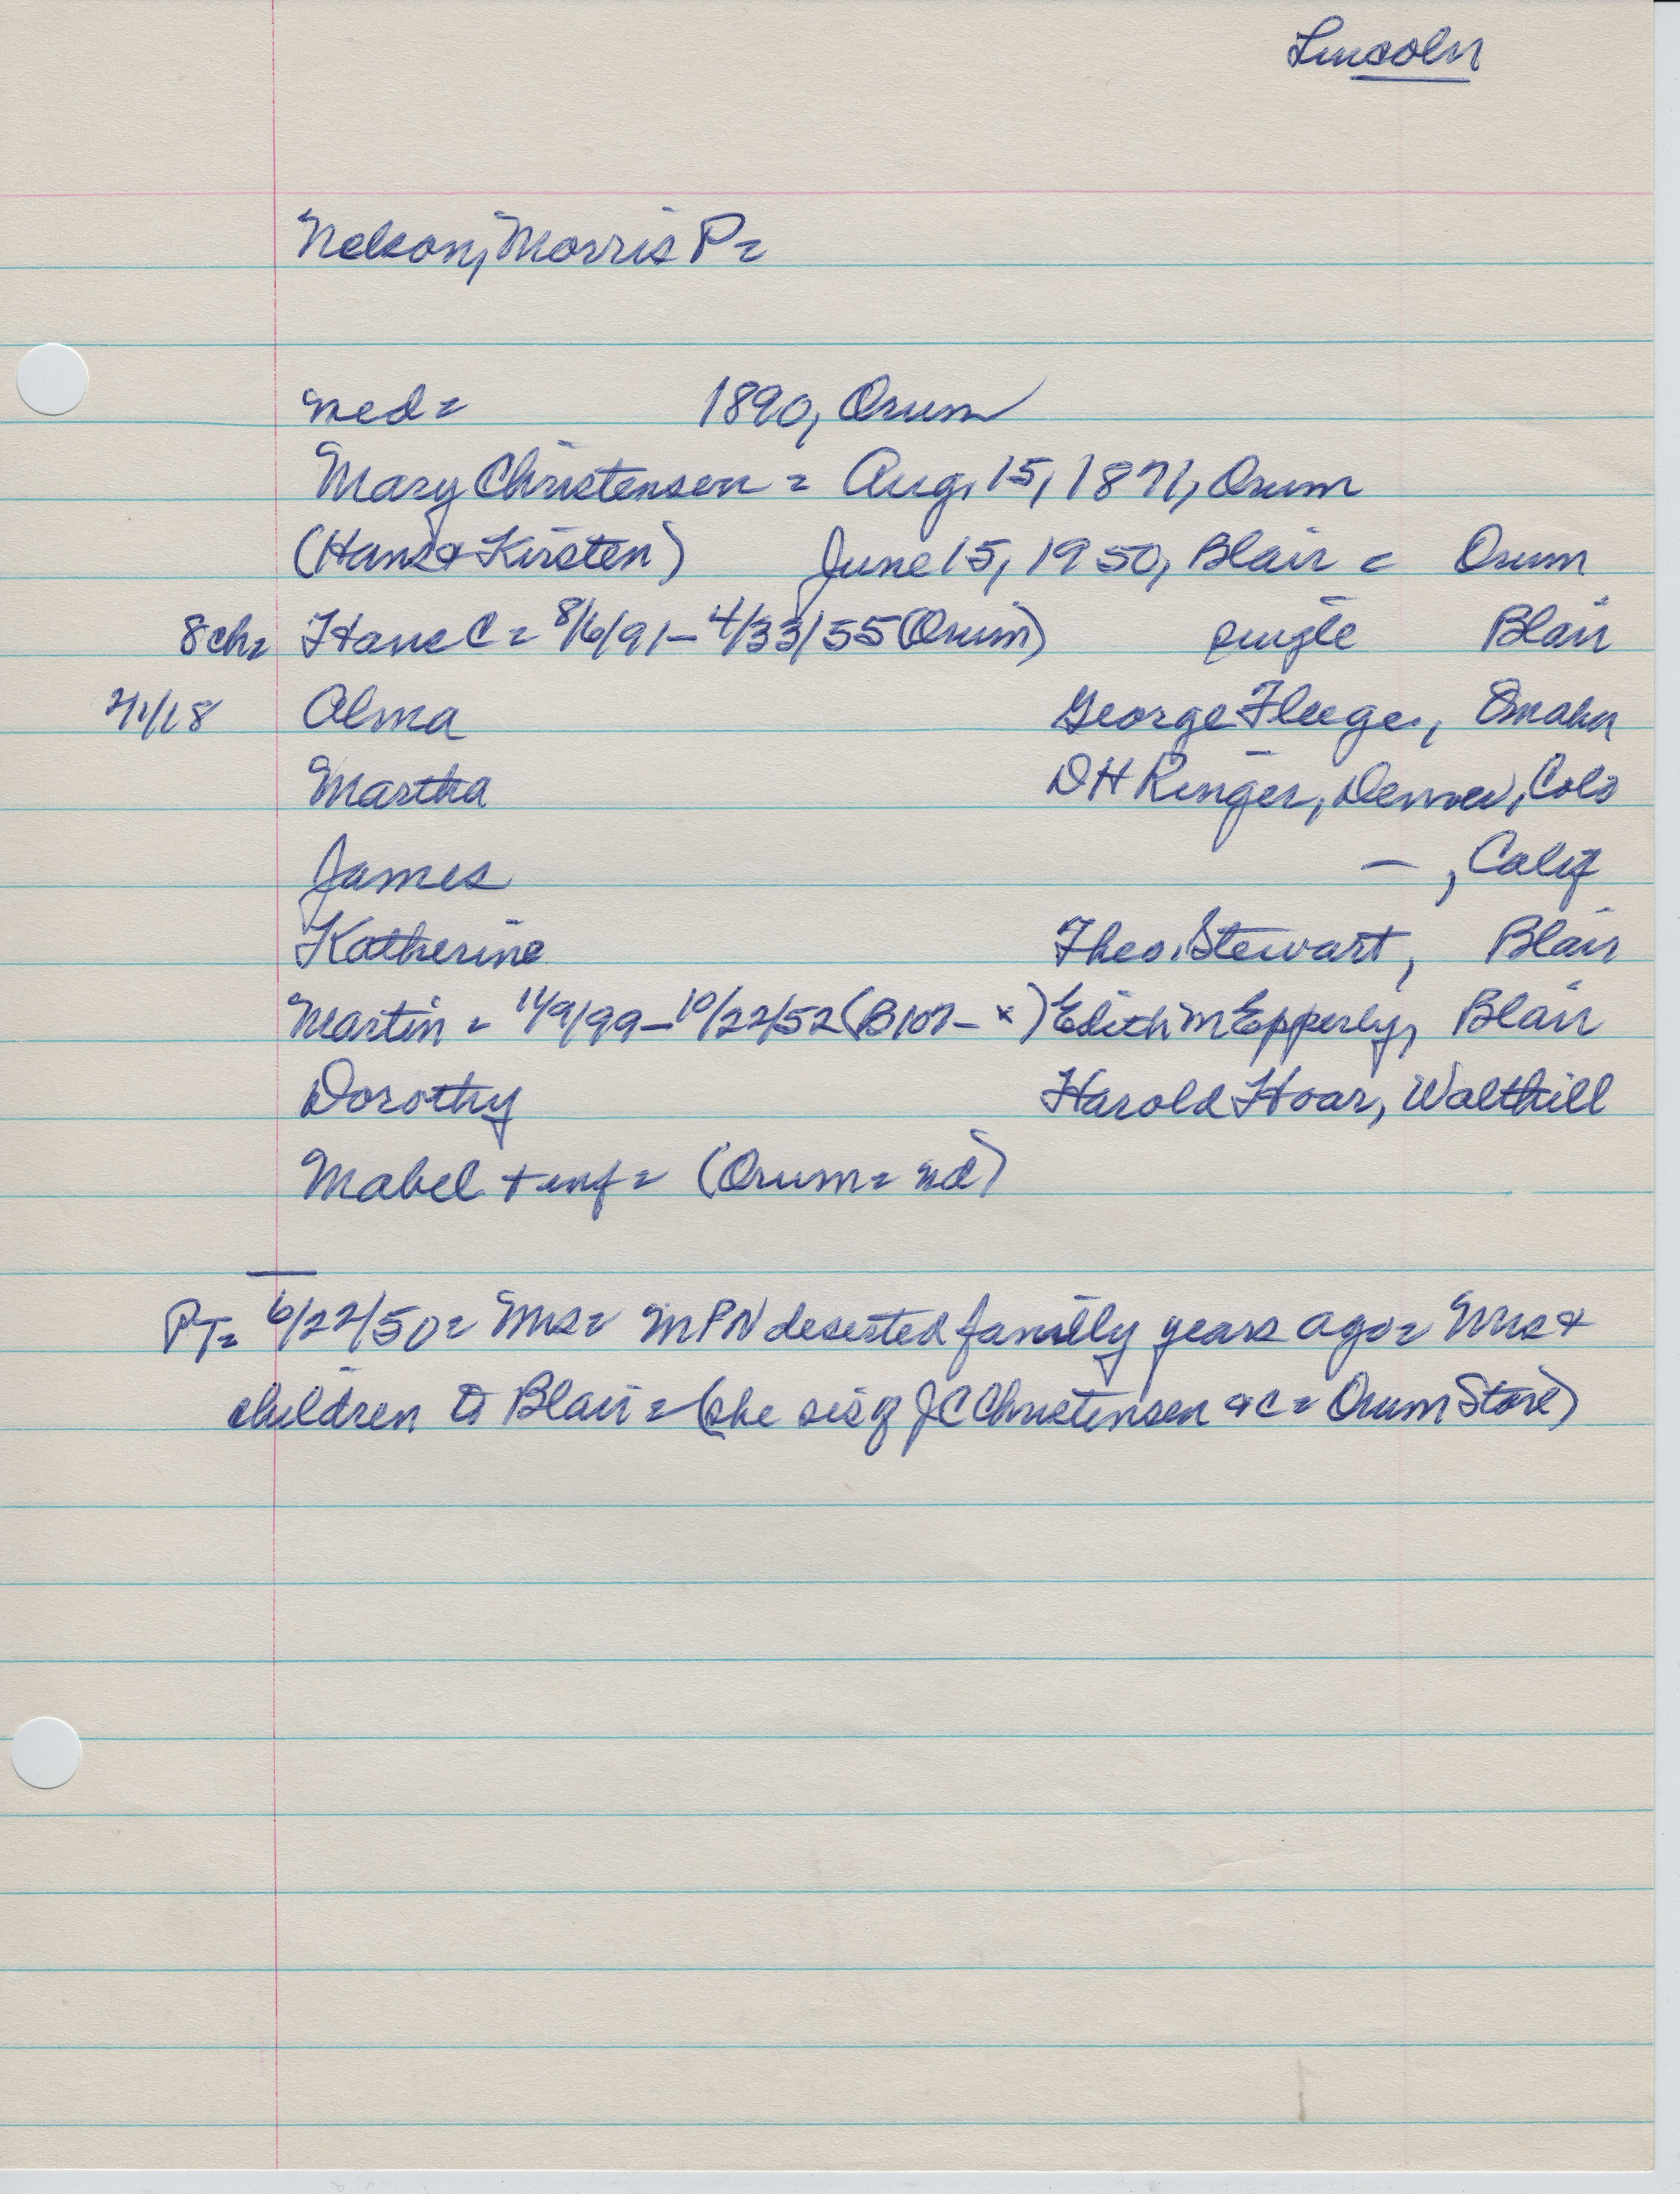 Lincoln
Nelson, Morris P=
med= 1890, Orum
Mary Christensen = Aug. 15, 1871, Orum
(Hans & Kirsten) June 15, 1950, Blair = Orum
8 ch= Hans C = 8/6/91 – 4/33/55 (Orum) single Blair
Alma George Fleege, Omaha
Martha DH Ringer, Denver, Colo
James — , Calif
Katherine Theo. Stewart, Blair
Martin = 11/9/99 – 10/22/52 (B107 – x) Edith M Epperly, Blair
Dorothy Harold Hoar, Walthill
Mabel + inf = (Orum = nd)
PT= 6/22/50= Mrs= MPN deserted family years ago= Mrs &
children to Blair = (she sis of JC Christensen &c = Orum Store)